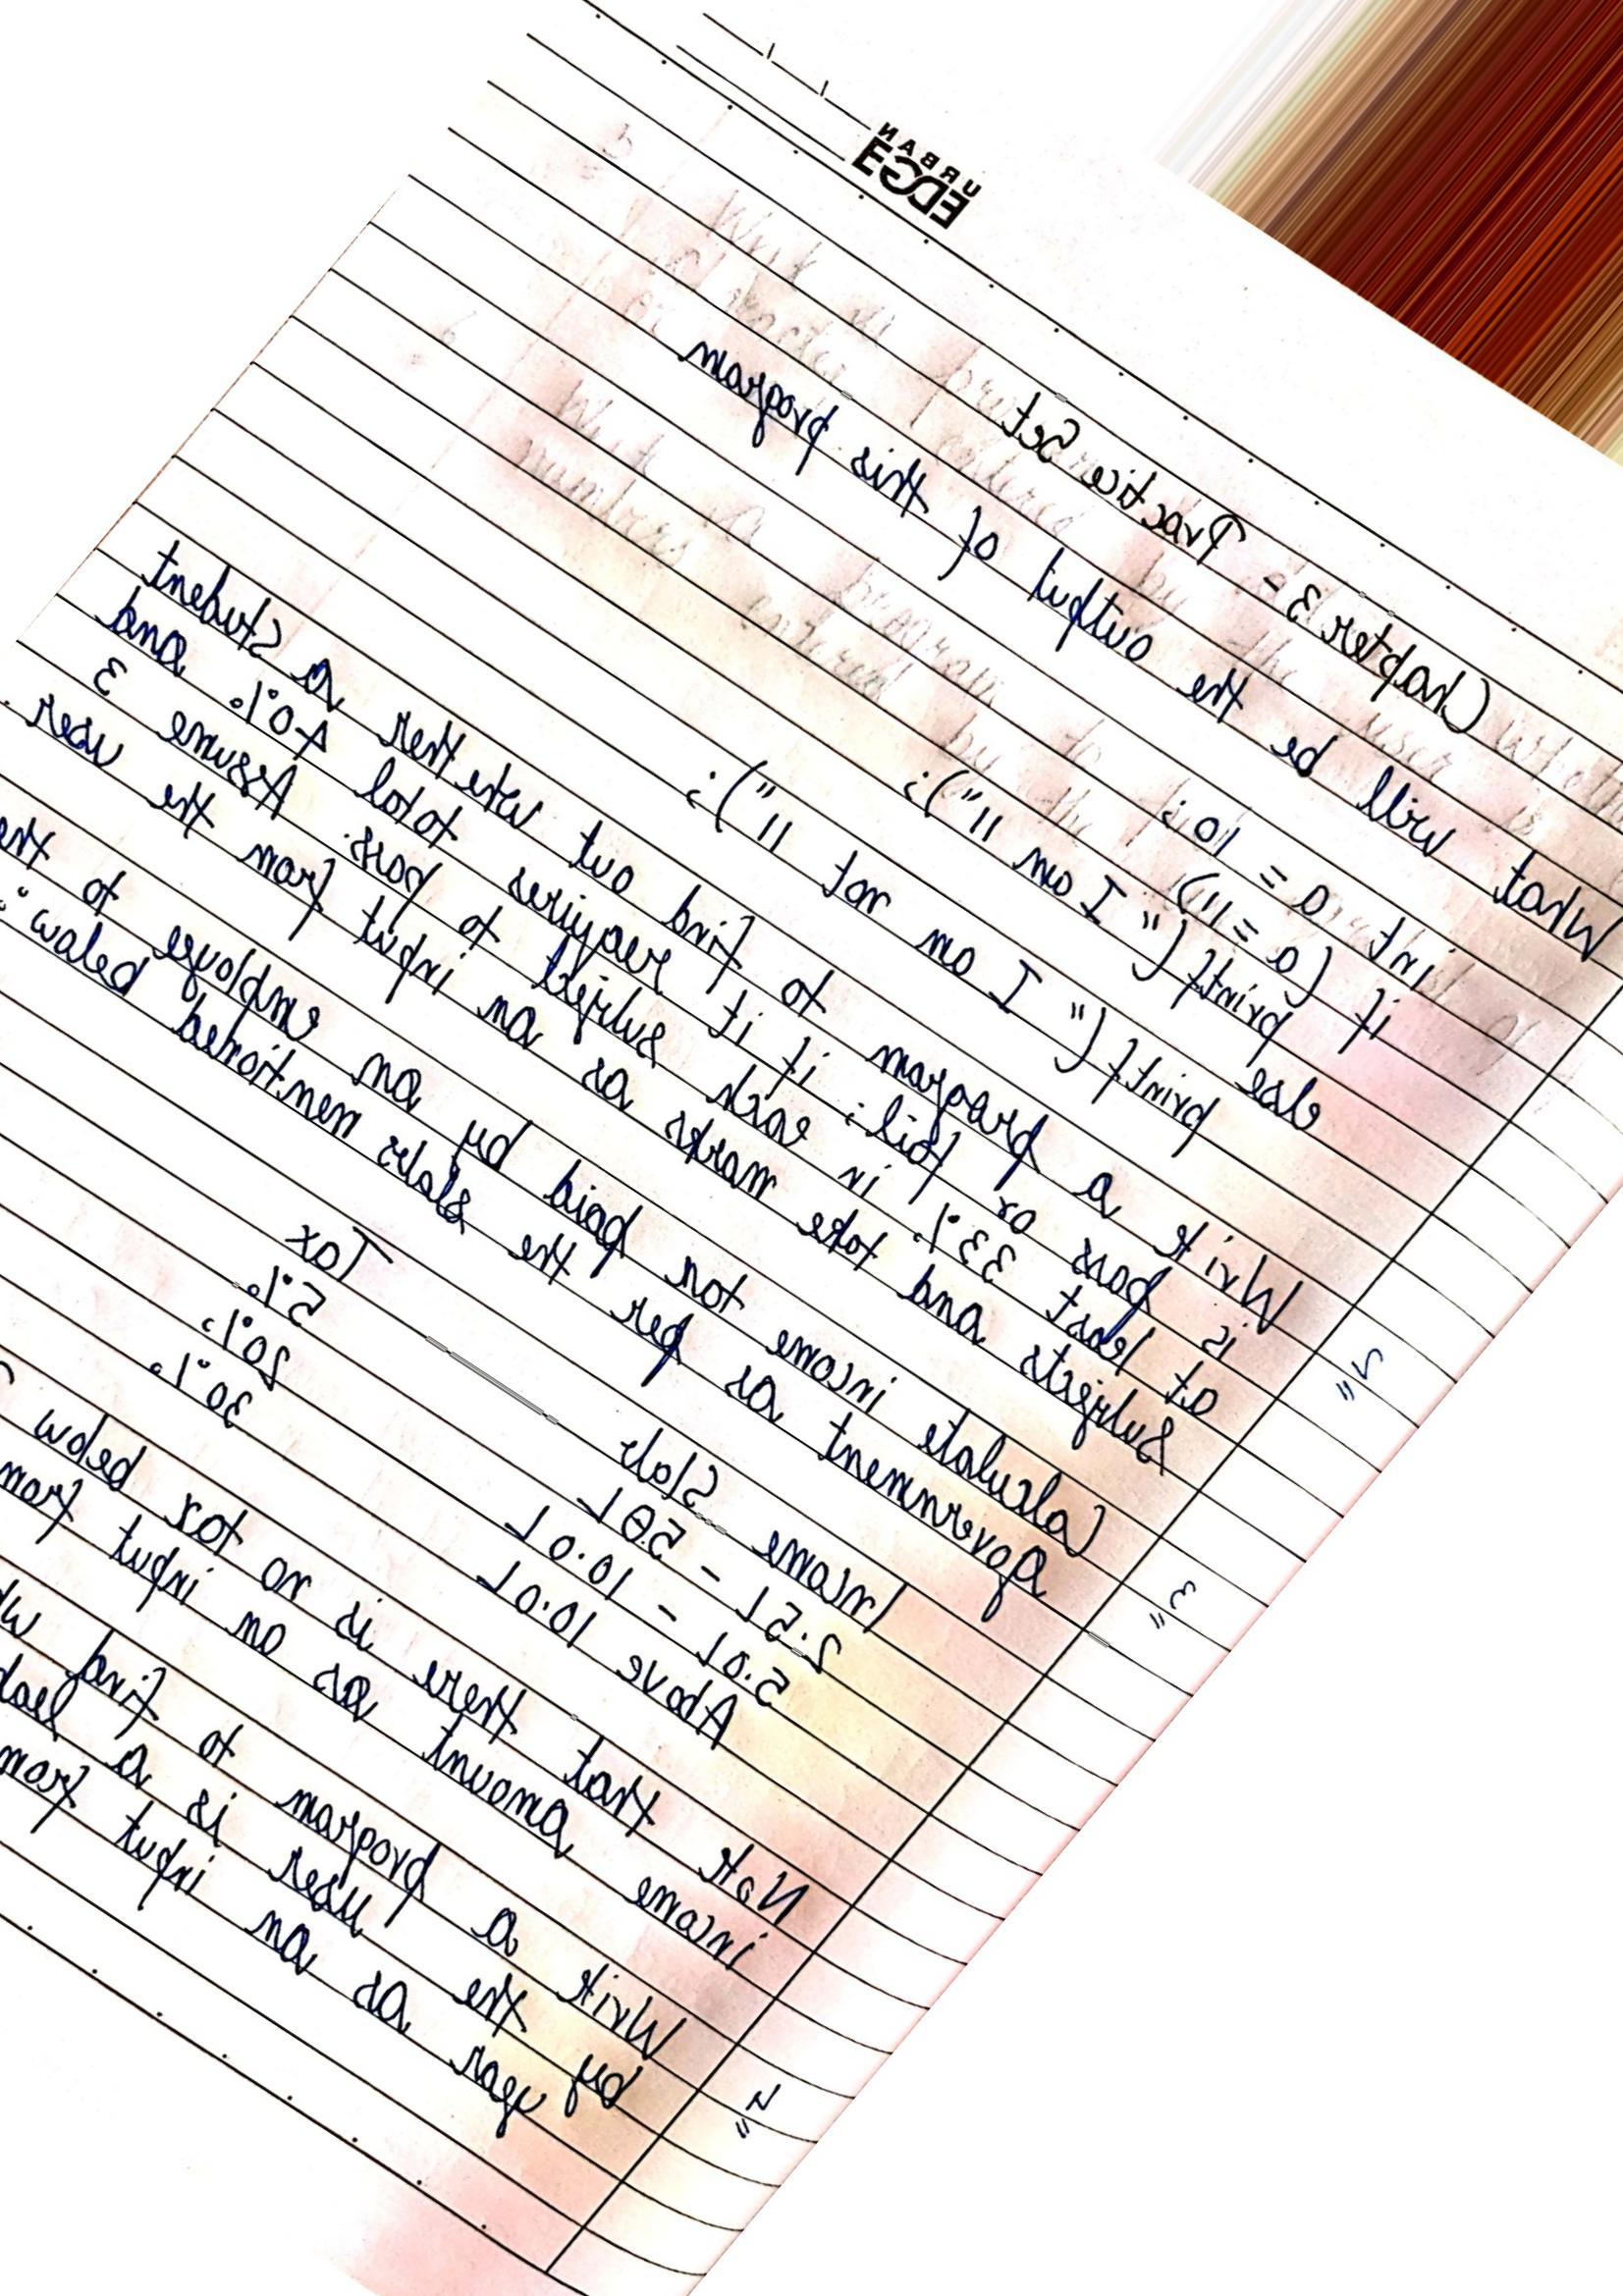 URBAN
EDGE
Chapter 3 - Practice Set
What will be the output of this program
int a = 10;
if (a = 11)
printf(" I am 11");
else
printf(" I am not 11");
2=
Write a program to find out whether a student
is pass or fail; if it requires total 40% and
at least 33% in each subject to pass. Assume 3
subjects and take marks as an input from the user.
3=
Calculate income tax paid by an employee to the
government as per the slabs mentioned below:
Income Slab Tax
2.5L - 5.0L 5%
5.0L - 10.0L 20%
Above 10.0L 30%
Note that there is no tax below
income amount as an input from
4=
Write a program to find
the user is a leap
by year as an input from